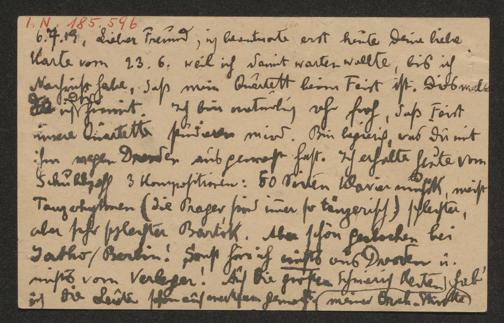 I.N. 185.596
6.7.19, Lieber Freund, ich beantworte erst heute Deine liebe
Karte vom 23.6. weil ich damit warten wollte, bis ich
Nachricht habe, daß mein Quartett beim Feist ist.
Ich bin natürlich sehr froh, daß Feist
unsere Quartette wird. Bin begierig, was Du mit
ihm wegen Dresden ausgemacht hast. Ich erhalte heute vom
Schulhoff 3 Kompositionen: 50 Seiten Klaviermusik, meist
Tanzrhythmen (die Prager sind immer so tänzerisch) schlechter,
aber sehr schlechter Bartók. Aber schon gestochen bei
Jatho/Berlin! Sonst höre ich nichts aus Dresden u.
nichts vom Verleger! Auf die großen hab'
ich die Leute schon aufmerksam gemacht (meiner Orch.-Stücke)